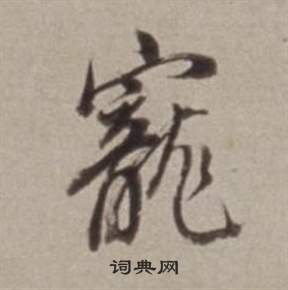 寵
词典网